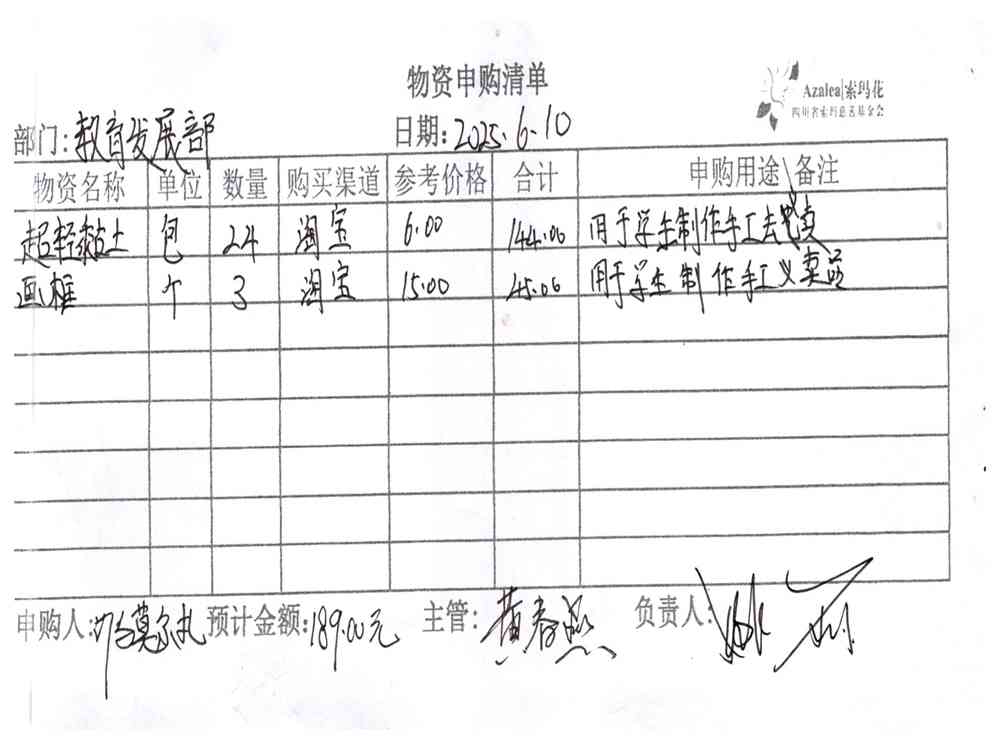 物资申购清单
Azalea|索玛花
四川省索玛慈善基金会
部门:教育发展部 日期:2025.6.10
物资名称 单位 数量 购买渠道 参考价格 合计 申购用途\备注
超轻黏土 包 24 淘宝 6.00 144.00 用于学生制作手工去卖
画框 个 3 淘宝 15.00 45.00 用于学生制作手工义卖品
申购人: 莫尔扎 预计金额:189.00元 主管:黄春燕 负责人: